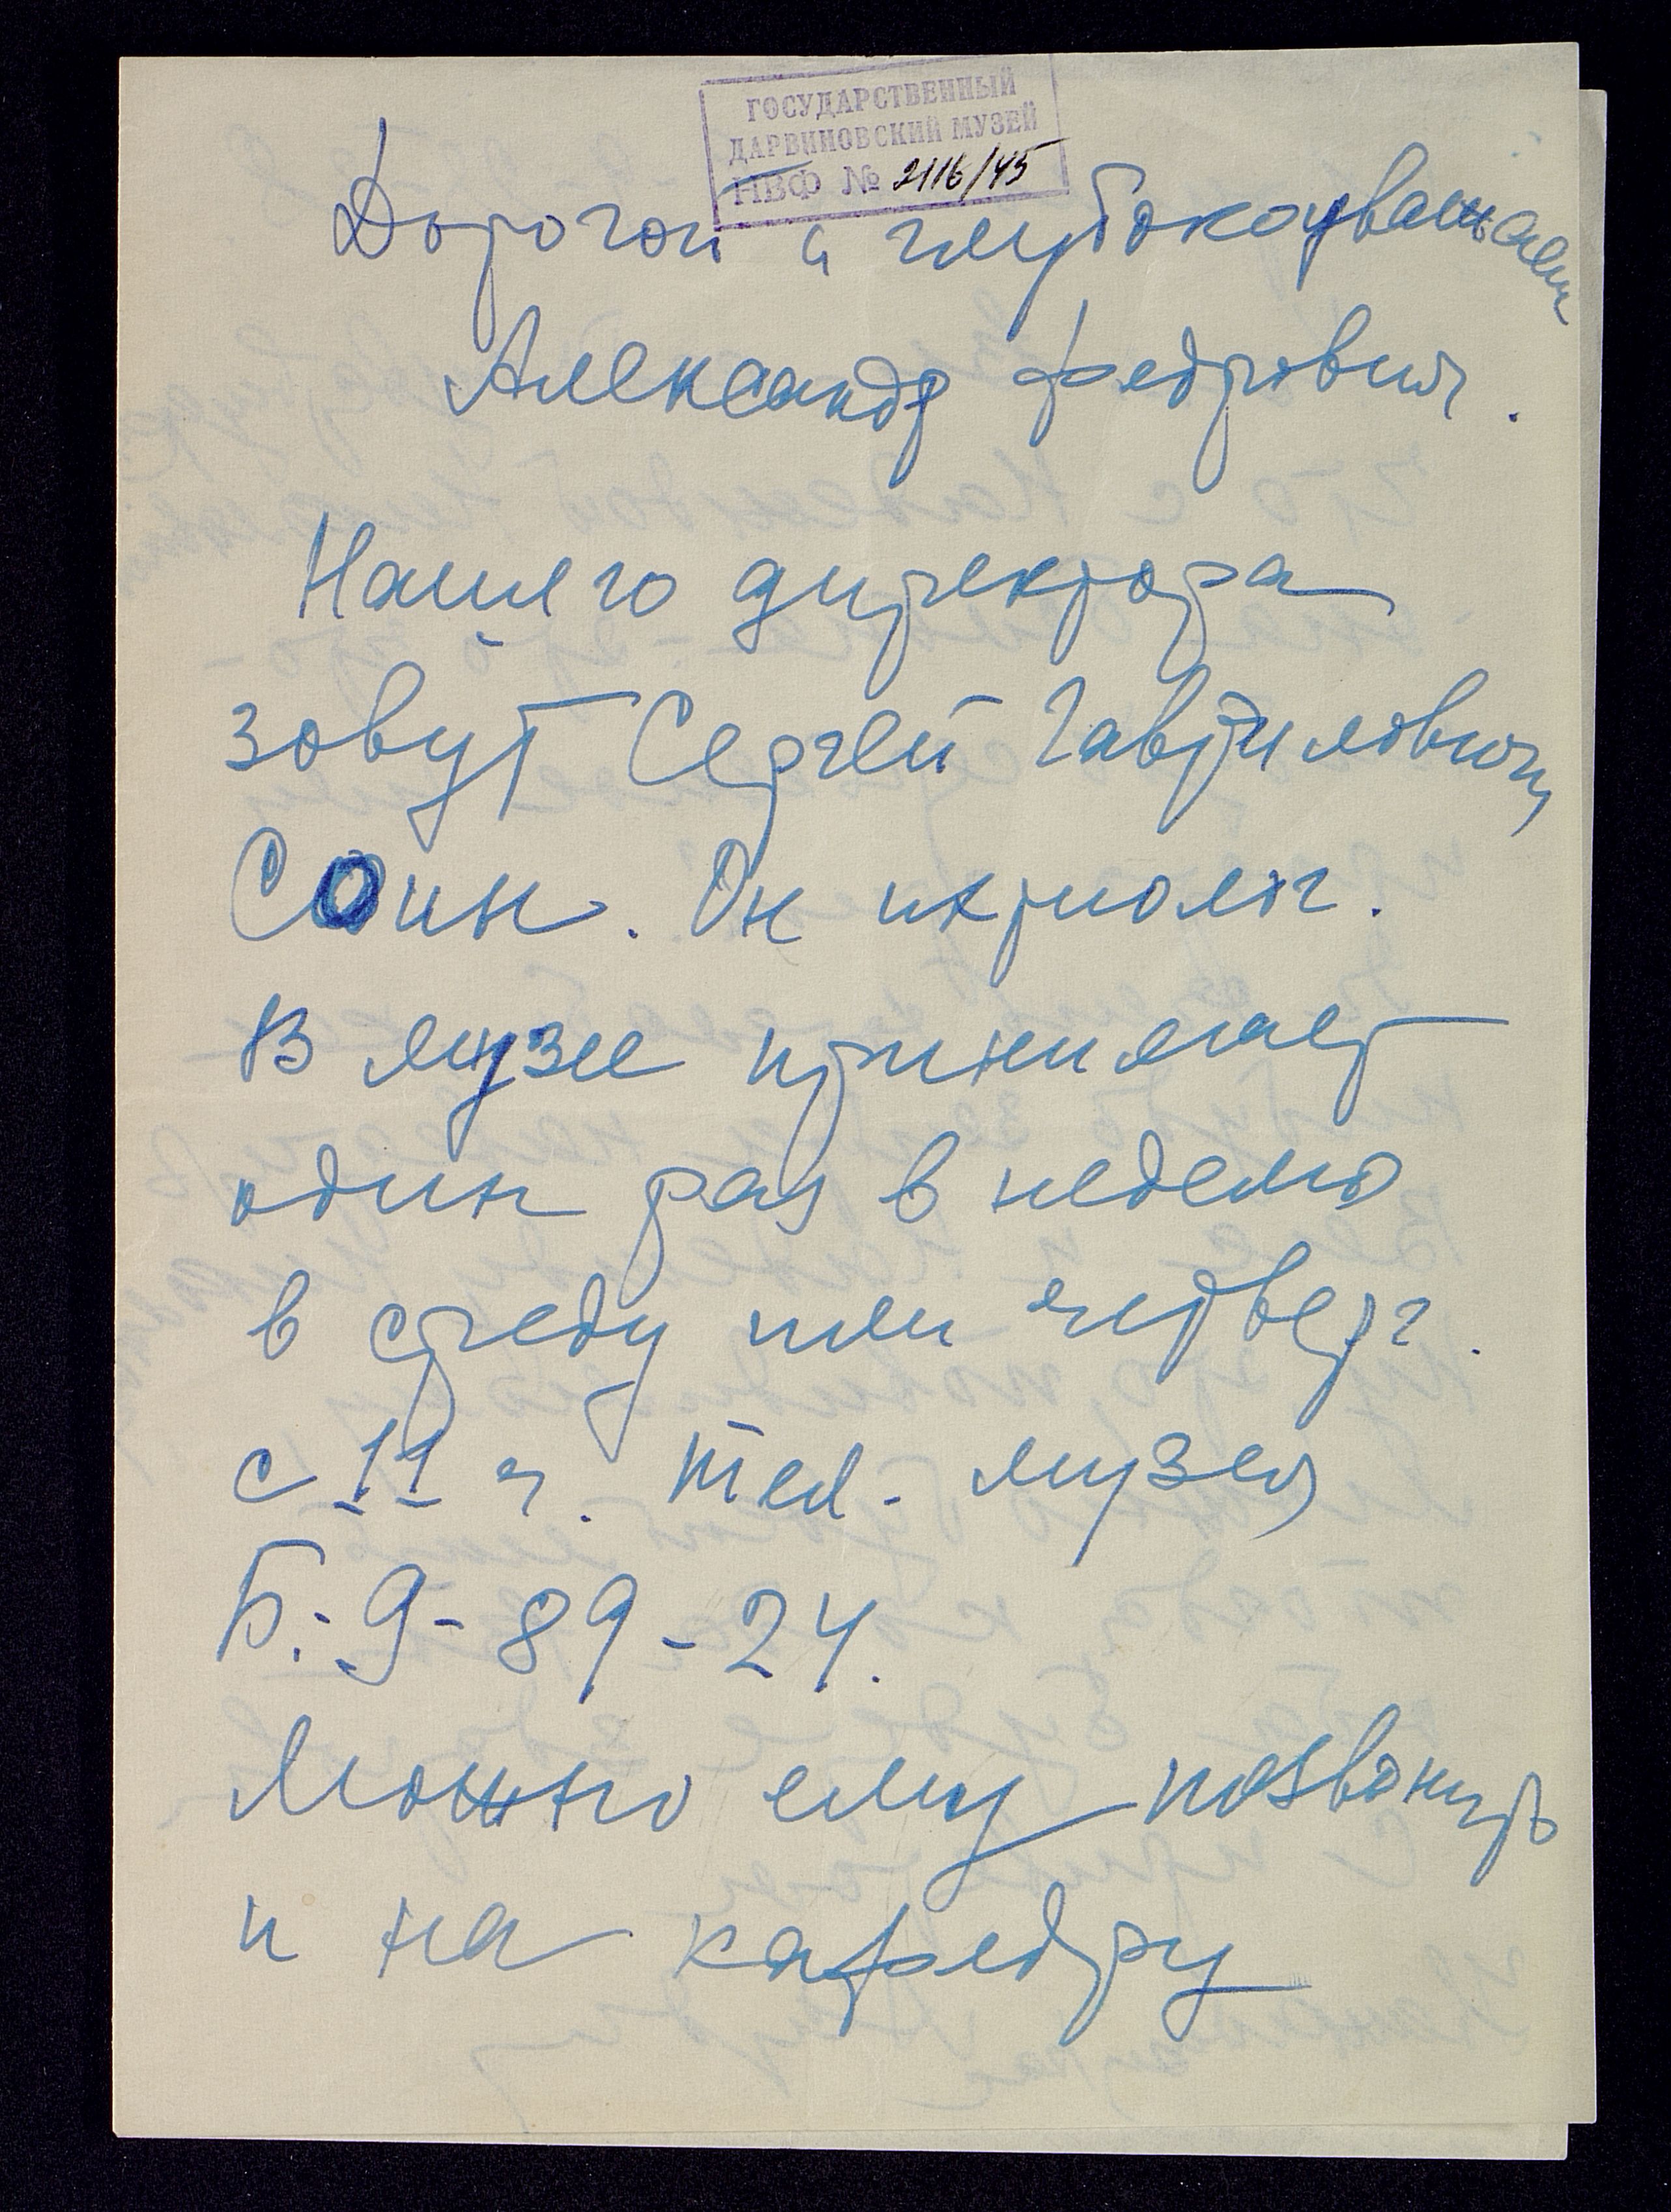 ГОСУДАРСТВЕННЫЙ
ДАРВИНОВСКИЙ МУЗЕЙ
НВФ № 2116/45
Дорогой и глубокоуважаемый
Александр Федрович.
Нашего директора
зовут Сергей Гаврилович
Соин. Он ихтиолог.
В музее принимает
один раз в неделю
в среду или четверг.
с 11 ч. тел. музея
Б.-9-89-24.
Можно ему позвонить
и на кафедру